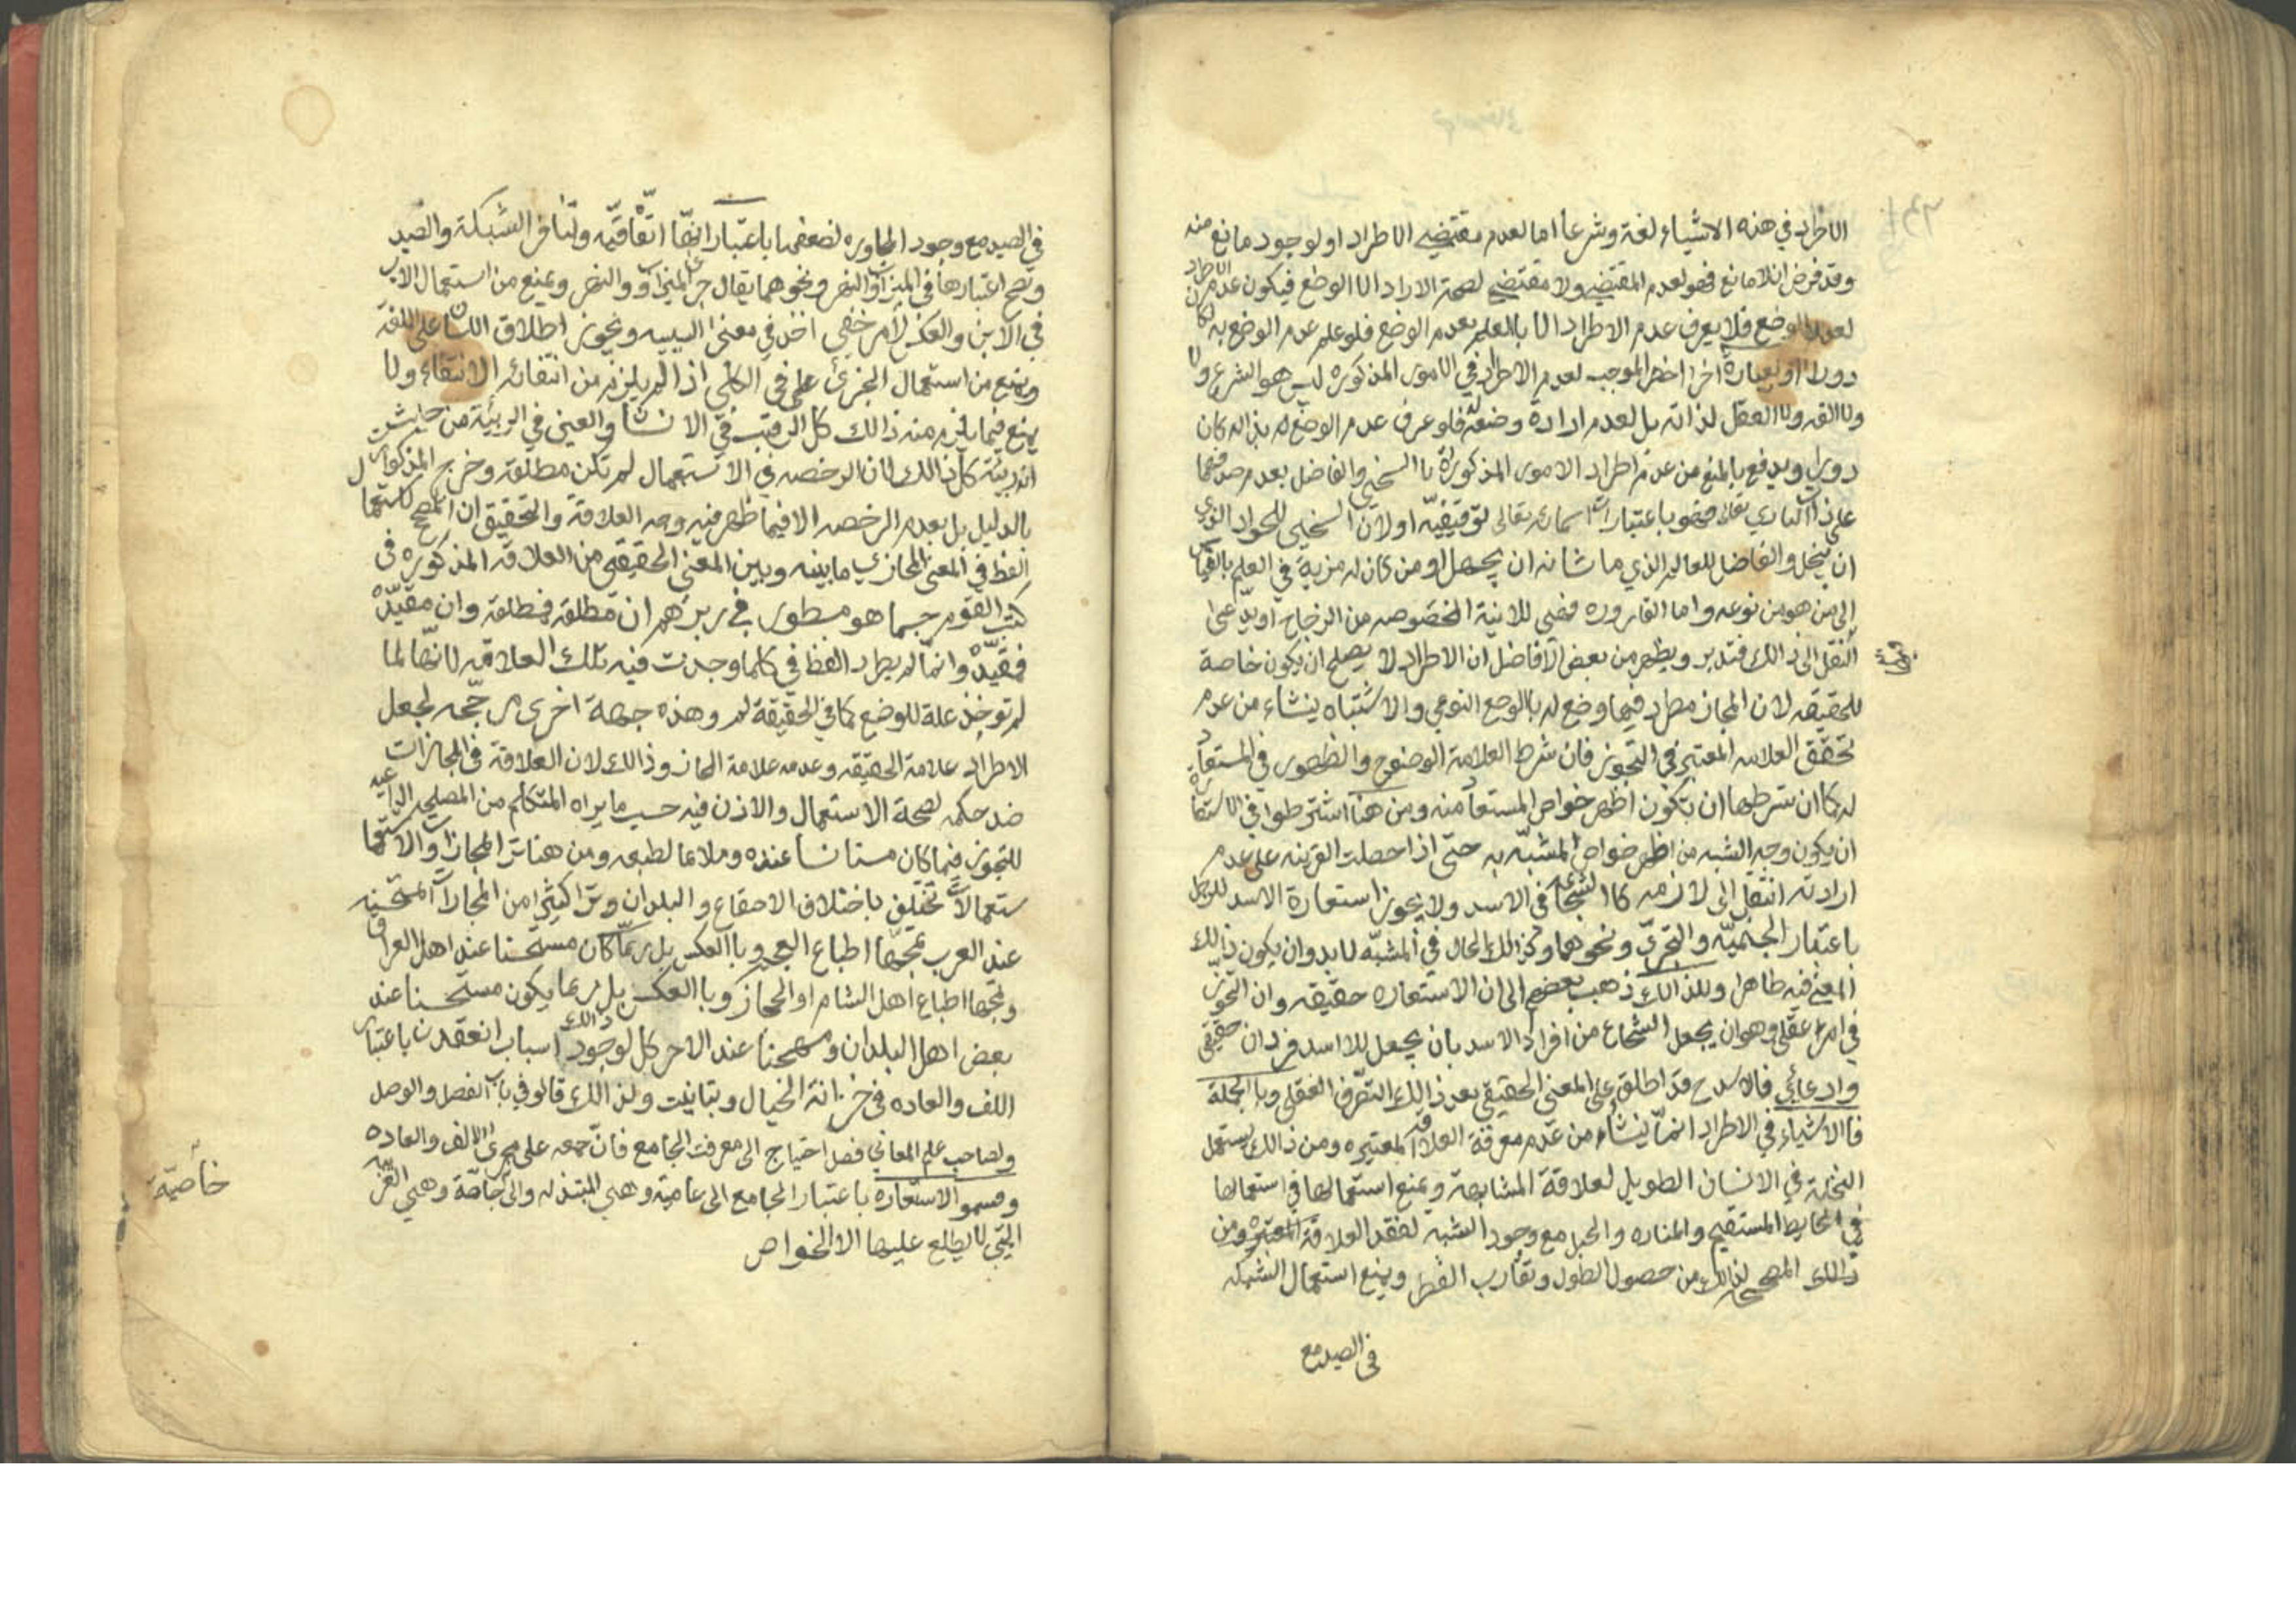 الاطراد في هذه الاشياء لغة وشرعا اما لعدم مقتضي الاطراد او لوجود مانع منه
وقد فرض ان لا مانع فهو لعدم المقتضي ولا مقتضي لصحة الاراد الا الوضع فيكون عدم الاطراد
لعدم الوضع فلا يعرف عدم الاطراد الا بالعلم بعدم الوضع فلو علم عدم الوضع به لكان
دورا او بعبارة اخرا اخصر الموجب لعدم الاطراد في الامور المذكوره ليس هو الشرع ولا
ولا القه ولا العقل لذاته بل لعدم ارادة وضعه فلو عرف عدم الوضع له بذاله كان
دوري ويدفع بالمنع من عدم اطراد الامور المذكورة با السخي والفاضل بعدم صدقهما
على ذات الباري تعالى فهو باعتبار ان اسمائه تعالى توقيفيّه او لان السخي للجواد الذي
ان يبخل والفاضل للعالم الذي ما شانه ان يجهل او من كان له مزية في العلم بالقياس
الى من هو من نوعه واما القاروره فهي للانية المخصوصه من الزجاج او يدّعى
النقل الى ذالك فتدبر ويظهر من بعض الافاضل ان الاطراد لا يصلح ان يكون خاصة
للحقيقه لان المجاز مطرد فيما وضع له بالوضع النوعي والاشتباه ينشاء من عدم
تحقق العلاقه المعتبر في التجوز فان شرط العلامة الوضوح والظهور في المستعار
له كما ان شرطها ان يتكون اظهر خواص المستعار منه ومن هنا اشترطوا في الاستعارة
ان يكون وجه الشبه من اظهر خواص المشبّه به حتى اذا حصلت القرينه على عدم
ارادته انتقل الى لازمه كا الشجاعه في الاسد ولا يجوز استعارة الاسد للرجل
باعتبار الجسميّه والتحرّك ونحوهما وكذالك الحال في المشبّه لا بد وان يكون ذالك
المعنى فيه ظاهرا وللذالك ذهب بعضهم الى ان الاستعاره حقيقه وان التجوز
في امر عقلي وهو ان يجعل الشجاع من افراد الاسد بان يجعل للاسد فردان حقيقي
وادعائي فالاسد ح قد اطلق على المعنى الحقيقي بعد ذالك التصّرف العقلي وبا الجملة
فالاشياء في الاطراد انمّا ينشاء من عدم معرفة العلاقه المعتبره ومن ذالك يستعمل
النخلة في الانسان الطويل لعلاقة المشابهة ويمنع استعمالها في استعمالها
في الحايط المستقيم والمناره والحبل مع وجود الشبه لفقد العلاقة المعتبره ومن
ذالك المصحح لذالك من حصول الطول وتقارب القطر ويمنع استعمال الشبكه
في الصيد مع
في الصيد مع وجود المجاوره لضعفها باعتبار انهّا اتّفاقيّه ولتنافر الشبكة والصيد
وتصح اعتبارها في الميزاب والنهر ونحوهما يقال جرى الميزاب والنهر ويمنع من استعمال الاب
في الابن والعكس لامر خفي اخذ في معنى السببيه ويجوز اطلاق اللسان على اللغة
ويمنع من استعمال الجزئ على في الكلي اذا لم يلزم من انتفائه الانتفاء ولا
يمنع فيما يلزم منه ذالك كل الرقبه في الانسان والعين في الربيئة من حيث
انه ربيئة كل ذالك لان الرخصه في الاستعمال لم تكن مطلقه وخرج المذكور
بالدليل بل بعدم الرخصه الا فيما ظهر فيه وجه العلاقة والتحقيق ان المصحح لاستعمال
الفظ في المعنى المجازي ما بينه وبين المعنى الحقيقي من العلاقه المذكوره في
كتب القوم حسبما هو مسطور في زبرهم ان مطلقه فمطلقه وان مقيّده
فمقيّده وانما لم يطرد الفظ في كلما وجدت فيه تلك العلاقه لانهّا لما
لم توخذ علة للوضع كما في الحقيقة لم وهذه جهة اخرى مرجّحه لجعل
الاطراد علامة الحقيقه وعدمه علامة المجاز وذالك لان العلاقة في المجازات
ضد حكمه لصحة الاستعمال والاذن فيه حسب ما يراه المتكلم من المصلحه الداعيه
للتجوز فيما كان مستانسا عنده وملاءما لطبعه ومن هنا ترا المجازات والاستعما
ستعمالات تختلف باختلاف الاصقاع والبلدان وترا كثيرا من المجازات المستحسنه
عند العرب تمجّها اطباع العجم وبا العكس بل ربمّا كان مستحسنا عند اهل العراق
وتمجها اطباع اهل الشام او الحجاز وبا العكس بل ربما يكون مستحسنا عند
بعض اهل البلدان ومستهجنا عند الاخر كل ذالك لوجود اسباب انعقدت باعتبار
اللف والعاده في خزانة الخيال وتباينت ولذالك قالو في باب الفصل والوصل
ولصاحب علم المعاني فضل احتياج الى معرفت الجامع فانّ جمعه على مجرى الالف والعاده
وقسمو الاستعاره باعتبار الجامع الى عاميّه وهي المبتذله والى خاصّة وهي الغريبه
التي لا يطلع عليها الا الخواص
خاصيّة